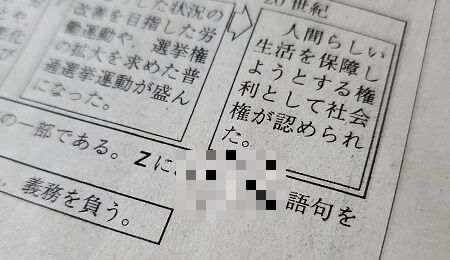 した状況の
改善を目指した労
働運動や，選挙権
の拡大を求めた普
通選挙運動が盛ん
になった。
世紀
人間らしい
生活を保障し
ようとする権
利として社会
権が認められ
た。
の一部である。Zに
語句を
義務を負う。